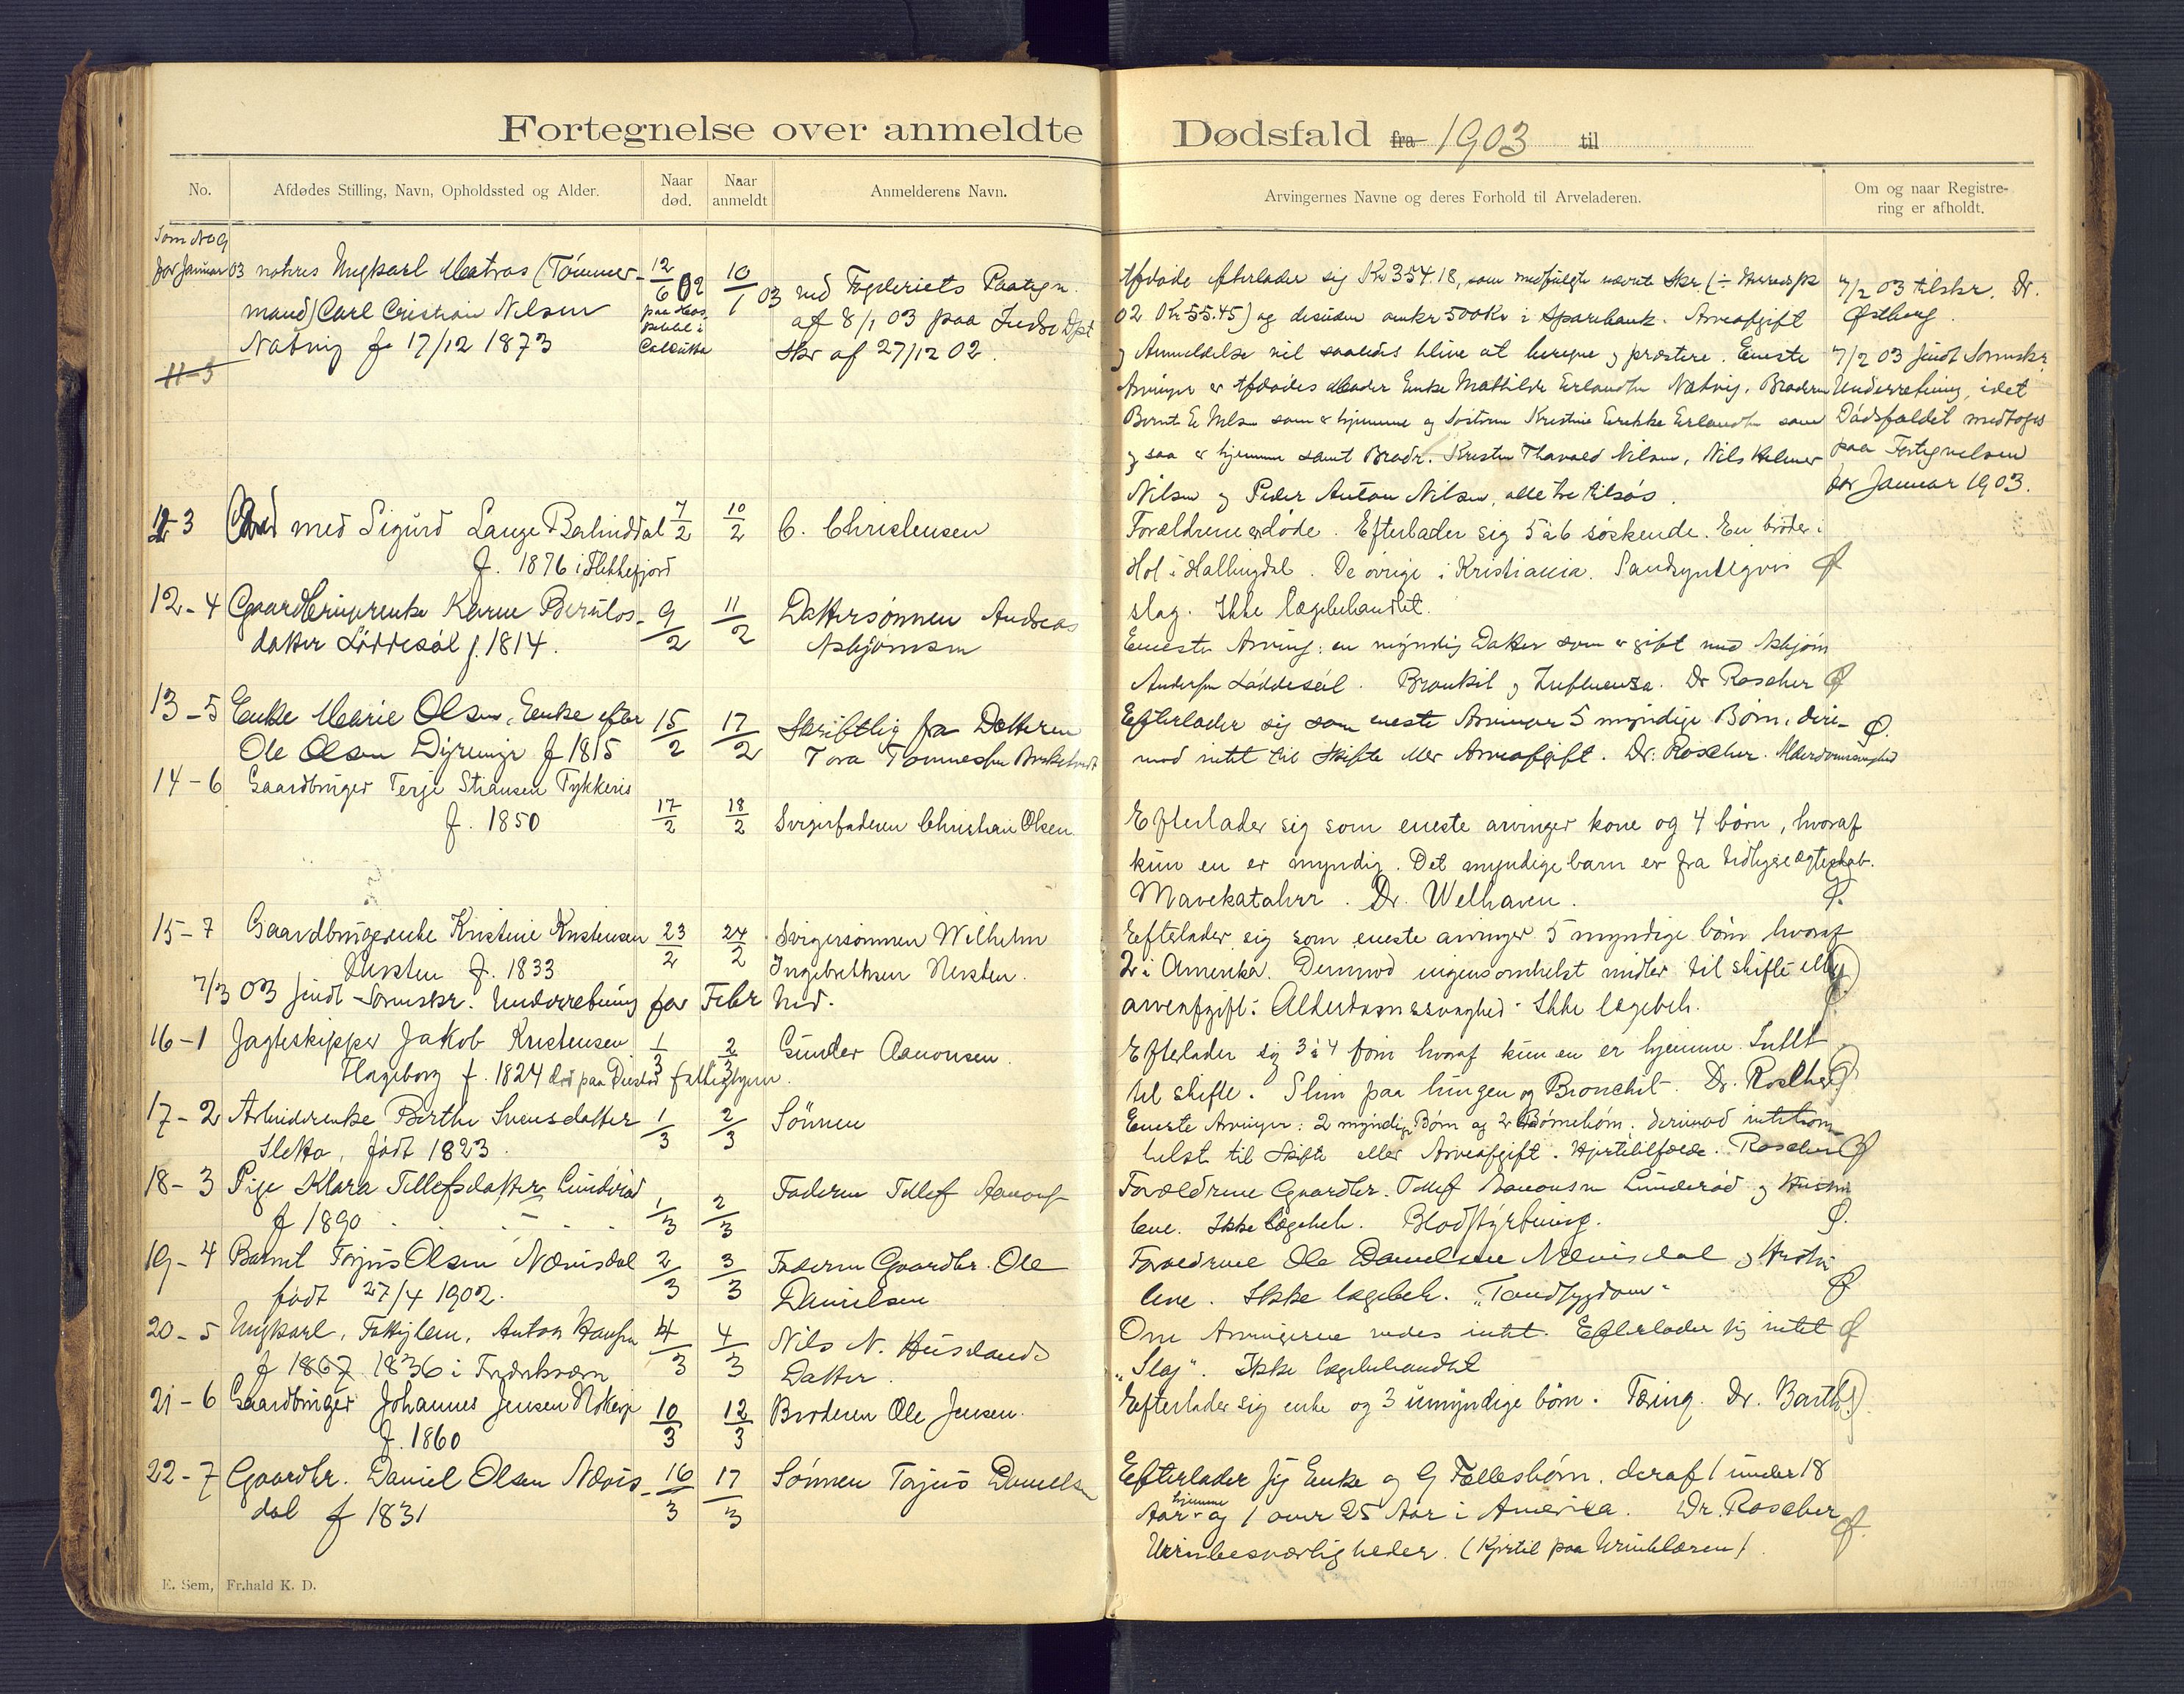 Fortegnelse over anmeldte Dødsfald fra 1903 til
No.
Afdødes Stilling, Navn, Opholdssted og Alder.
Naar død.
Naar anmeldt
Anmelderens Navn.
Arvingernes Navne og deres Forhold til Arveladeren.
Om og naar Registrering er afholdt.
Som No 9
for Januar 03 noteres Ungkarl Matros (Tømmer-
mand) Carl Cristian Nilsen
Natvig f. 17/12 1873
12/6 02
paa Hos-
pital i
Calcutta
10/1 03
ved Fogderiets Paategn.
af 8/1 03 paa Indre Dpt
Skr af 27/12 02.
Afdøde efterlader sig Kr 354.18, som medfulgte nævnte Skr. (÷
02 Kr 55.45) og desuden omkr 500 Kr i Sparebank. Arveafgift
og Anmeldelse vil saaledes blive at beregne og præstere. Eneste
Arvinger er Afdødes Moder Enke Mathilde Erlandsen Natvig, Broderen
Bernt E Nilsen som er hjemme og Søsteren Kristine Erlandsen som
og saa er hjemme samt Brødr. Kristen Thorvald Nilsen, Nils Helmer
Nilsen og Peder Anton Nilsen, alle tre tilsøs.
7/2 03 tilskr. Dr.
Østberg.
7/2 03 sendt Sorenskr.
Underretning, idet
Dødsfaldet medtoges
paa Fortegnelsen
for Januar 1903.
11-3
11-3 med Sigurd Lange Berlinddal
f. 1876 i Flekkefjord
7/2
10/2
C. Christensen
Forældrene er døde. Efterlader sig 5 à 6 søskende. En broder i
Hol i Hallingdal. De øvrige i Kristiania. Sandsynligvis
slag. Ikke lægebehandlet.
Ø
12-4 Gaardbrugerenke Karen Berulos-
datter Løddesøl f. 1814.
9/2
11/2
Dattersønnen Andreas
Asbjørnsen
Eneste Arving: en myndig Datter som er gift med Asbjørn
Andersen Løddesøl. Bronkit og Influensa. Dr Roscher Ø
13-5 Enke Marie Olsen, Enke efter
Ole Olsen Dyrenip f 1815
15/2
17/2
Skriftlig fra Datteren
Tora Tonnesen
Efterlader sig som eneste Arvinger 5 myndige Børn, deri- Ø.
mod intet til Skifte eller Arveafgift. Dr. Roscher. Alderdomssvaghed
14-6 Gaardbruger Terje Stiansen Tykkeris
f. 1850
17/2
18/2
Svigerfaderen Christian Olsen
Efterlader sig som eneste arvinger kone og 4 børn, hvoraf
kun en er myndig. Det myndige barn er fra tidligere ægteskab.
Mavekatahrr. Dr. Welhaven.
Ø.
15-7 Gaardbrugerenke Kristine Kristensen
Nersten f. 1833
23/2
24/2
Svigersønnen Wilhelm
Ingebrethsen Nersten.
Efterlader sig som eneste arvinger 5 myndige børn hvoraf
2 i Amerika. Derimod ingensomhelst midler til skifte eller
arveafgift. Alderdomssvaghed. Ikke lægebeh.
7/3 03 sendt Sorenskr. Underretning for Febr Md.
16-1 Jagteskipper Jakob Kristensen
Hageborg f. 1824 død paa fattighjem.
1/3
2/3
Gunder Aanonsen.
Efterlader sig 3 à 4 børn hvoraf kun en er hjemme. Intet
til skifte. Slim paa lungen og Bronchit. Dr. Roscher Ø
17-2 Arbeiderenke Berthe Svensdatter
Sletta, født 1823.
1/3
2/3
Sønnen
Eneste Arvinger: 2 myndige Børn og 2 Børnebørn. Derimod intetsom-
helst til Skifte eller Arveafgift. Hjertetilfælde. Roscher Ø
18-3 Pige Klara Tellefsdatter Lunderød
f 1890
1/3
2/3
Faderen Tellef Aanonsen
Forældrene Gaardbr. Tellef Aanonsen Lunderød og Hustru
leve. Ikke lægebeh. Blodstyrtning.
Ø.
19-4 Barnet Torjus Olsen Nævisdal
født 27/4 1902.
2/3
3/3
Faderen Gaardbr. Ole
Danielsen
Forældrene Ole Danielsen Nævisdal og Hustru
leve. Ikke lægebeh. "Tandsygdom"
Ø
20-5 Ungkarl, Fattiglem, Anton Hansen
f 1867 1836 i Fredriksværn
4/3
4/3
Nils N. Huslands
Datter.
Om Arvingerne vides intet. Efterlader sig intet Ø
"Slag". Ikke lægebehandlet
21-6 Gaardbruger Johannes Jensen
f. 1860
10/3
12/3
Broderen Ole Jensen.
Efterlader sig enke og 3 umyndige børn. Tæring. Dr. Barth Ø
22-7 Gaardbr. Daniel Olsen Nævis-
dal f 1831
16/3
17/3
Sønnen Torjus Danielsen
Efterlader sig Enke og 9 Fællesbørn. deraf 1 under 18
Aar hjemme og 1 over 25 Aar i Amerika. Dr. Roscher
Urinbesværligheder. (Kjertel paa Urinblæren)
Ø.
E. Sem, Fr.hald K. D.